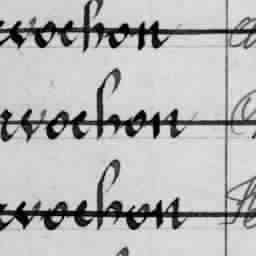 rvochon
rvochon
rvochon